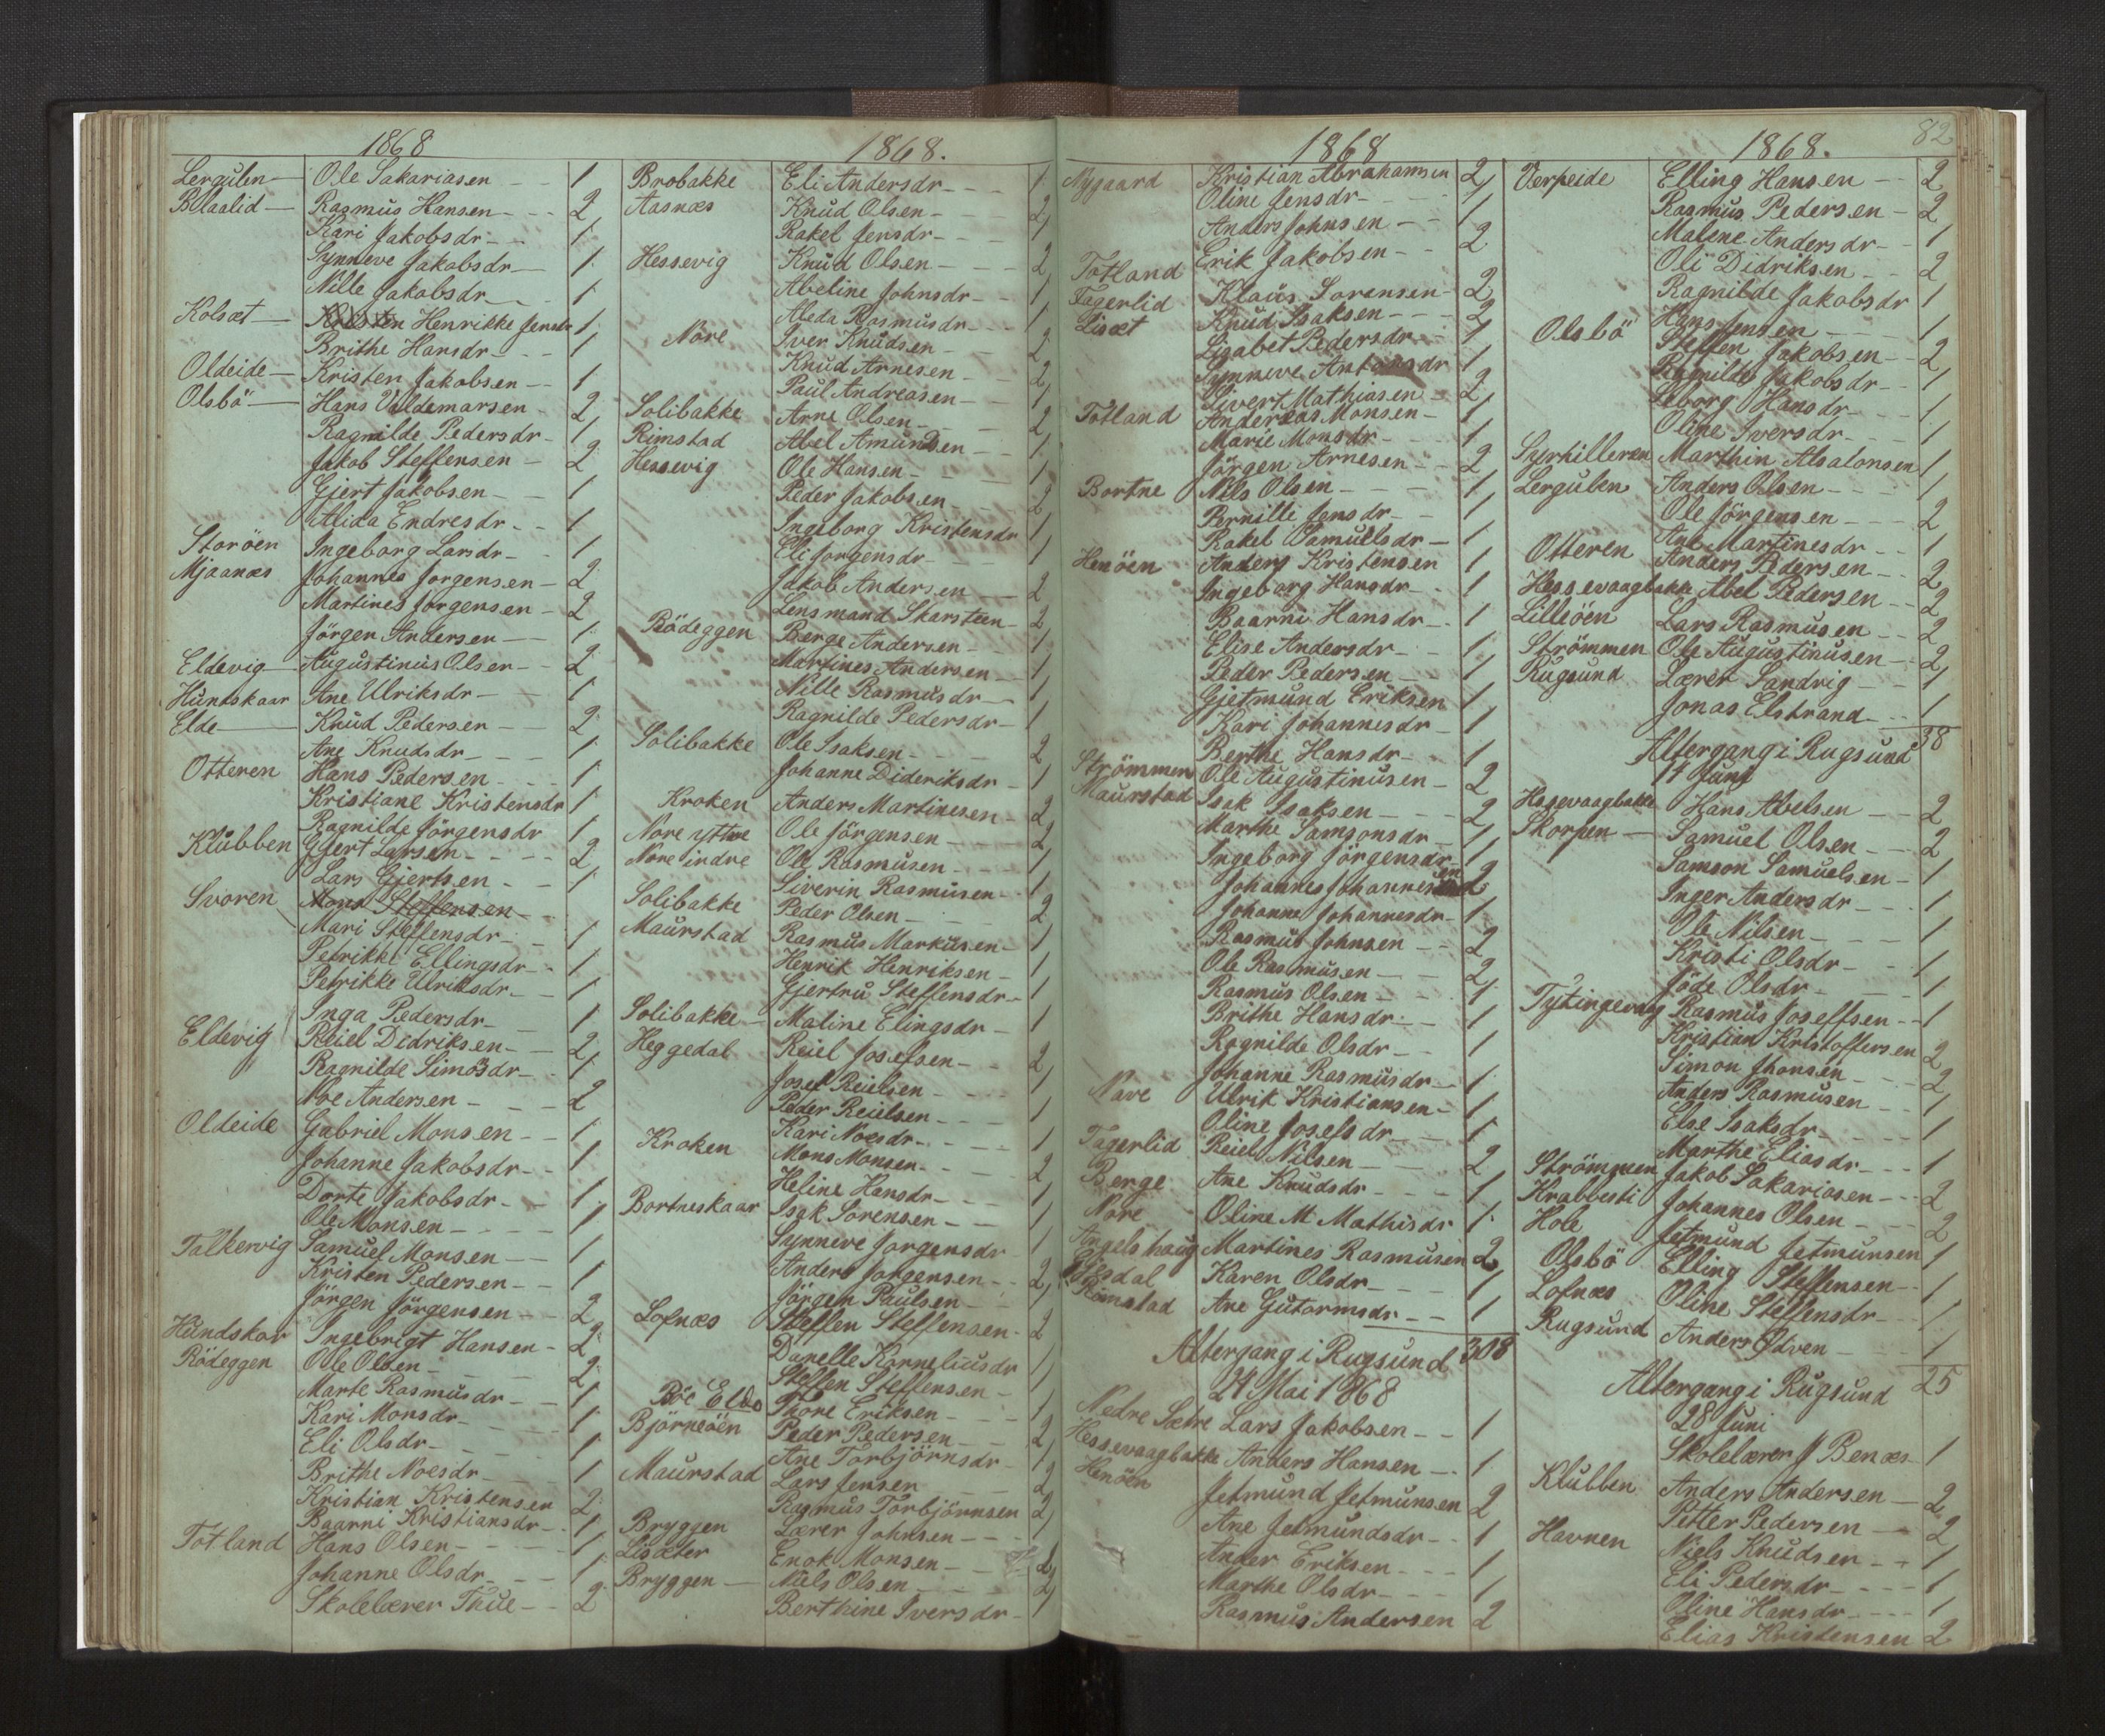 1868
Lergulen Ole Sakariasen 1
Blaalid Rasmus Hansen 2
Kari Jakobsdr 1
Synneve Jakobsdr 1
Nille Jakobsdr 1
Kolsæt Henrikke Jensdr 1
Brithe Hansdr 1
Oldeide Kristen Jakobsen 1
Olsbö Hans Valdemarsen 2
Ragnilde Pedersdr 1
Jakob Steffensen 2
Gjert Jakobsen 1
Alida Endresdr 1
Storöen Ingeborg Larsdr 1
Mjaanæs Johannes Jorgensen 2
Martines Jorgensen 2
Jörgen Andersen 1
Eldevig Augustinus Olsen 2
Hundskaar Ane Ulriksdr 1
Elde Knud Pedersen 2
Ane Knudsdr 1
Otteren Hans Pedersen 1
Kristiane Kristensdr 1
Ragnilde Jörgensdr 1
Klubben Gjert Larsen 2
Lars Gjertsen 1
Svoren Mons Steffensen
Mari Steffensdr 1
Petrikke Ellingsdr 1
Petrikke Ulriksdr 1
Inga Pedersdr 1
Eldevig Reiel Didriksen 2
Ragnilde Simosdr 1
Noe Andersen 2
Oldeide Gabriel Monsen 1
Johanne Jakobsdr 1
Dorte Jakobsdr 1
Ole Monsen 1
Talkevig Samuel Monsen 1
Kristen Pedersen 1
Jörgen Jörgensen 2
Hundskar Ingebrigt Hansen 2
Rödeggen Ole Olsen 2
Marte Rasmusdr 1
Kari Monsdr 1
Eli Olsdr 1
Brithe Noesdr 1
Kristian Kristensen 2
Baarni Kristiansdr 1
Totland Hans Olsen 1
Johanne Olsdr 1
Skolelærer Thue 2
1868.
Brobakke Eli Andersdr 1
Aasnæs Knud Olsen 2
Rakel Jensdr 1
Hessevig Knud Olsen 2
Abeline Johnsdr 1
Aleda Rasmusdr 1
Nore Iver Knudsen 2
Knud Arnesen 2
Paul Andreasen 1
Solibakke Arne Olsen 2
Rimstad Abel Amundsen 1
Hessevig Ole Hansen 1
Peder Jakobsen 2
Ingeborg Kristensdr 1
Eli Jorgensdr 1
Jakob Andersen 2
Lensmand Skarsteen 2
Rödeggen Berge Andersen 1
Martines Andersen 1
Nille Rasmusdr 1
Ragnilde Pedersdr 1
Solibakke Ole Isaksen 2
Johanne Dideriksdr 1
Kroken Anders Martinesen 2
Nore yttre Ole Jörgensen 2
Nore indre Ole Rasmusen 1
Siverin Rasmusen 1
Solibakke Peder Olsen 2
Maurstad Rasmus Markusen 1
Henrik Henriksen 1
Gjertru Steffensdr 1
Solibakke Maline Elingsdr 1
Heggedal Reiel Josefsen 2
Josef Reielsen 1
Peder Reielsen 1
Kari Noesdr 1
Kroken Mons Monsen 2
Heline Hansdr 1
Bortneskaar Isak Sorensen 1
Synneve Jorgensdr 1
Anders Jorgensen 2
Jörgen Paulsen 1
Lofnæs Steffen Steffensen 2
Danelle Korneliusdr 1
Steffen Steffensen 1
Elde Tore Eriksen 1
Björneöen Peder Pedersen 2
Ane Torbjörnsdr 1
Maurstad Lars Jensen 2
Rasmus Torbjörnsen 2
Bryggen Lærer Johnsen 1
Lisæter Enok Monsen 2
Bryggen Niels Olsen 2
Berthine Iversdr 1
1868
Nygaard Kristian Abrahamsen 2
Oline Jensdr 1
Anders Johnsen 1
Totland Erik Jakobsen 2
Fagerlid Klaus Sorensen 2
Lisæt Knud Isaksen 2
Lisabet Pedersdr 1
Synneve Antonsdr 1
Sivert Mathiasen 2
Totland Andereas Monsen 1
Marie Monsdr 1
Jörgen Arnesen 2
Bortne Nils Olsen 1
Pernille Jensdr 1
Rakel Samuelsdr 1
Henöen Anders Kristensen 1
Ingeborg Hansdr 1
Baarni Hansdr 1
Elise Andersdr 1
Peder Pedersen 1
Gjetmund Eriksen 1
Kari Johannesdr 1
Berthe Hansdr 1
Strömmen Ole Augustinusen 2
Maurstad Isak Isaksen 2
Marthe Samsonsdr 1
Ingeborg Jörgensdr 1
Johannes Johannesen 2
Johanne Johannesdr 1
Rasmus Johnsen 2
Ole Rasmusen 2
Rasmus Olsen 1
Brithe Hansdr 1
Ragnilde Olsdr 1
Johanne Rasmusdr 1
Nave Ulrik Kristiansen 1
Oline Josefsdr 1
Fagerlid Reiel Nilsen 2
Berge Ane Knudsdr 1
Nore Oline M Mathisdr 1
Angelshaug Martines Rasmusen 2
Karen Olsdr 1
Rimstad Ane Gutormsdr 1
308
Altergang i Rugsund
24 Mai 1868
Nedre Sætre Lars Jakobsen 1
Hessevaagbakke Anders Hansen 1
Henöen Jetmund Jetmunsen 2
Ane Jetmundsdr 1
Ander Eriksen 1
Marthe Olsdr 1
Rasmus Andersen 2
82
1868.
Verpeide Elling Hansen 2
Rasmus Pedersen 2
Malene Andersdr 1
Oli Didriksen 2
Ragnilde Jakobsdr 1
Hans Jensen 1
Olsbö Steffen Jakobsen 2
Ragnilde Jakobsdr 1
Seborg Hansdr 1
Oline Iversdr 1
Syrhilleren Marthin Absalonsen 1
Lergulen Anders Olsen 1
Ole Jörgensen 2
Ane Martinesdr 1
Otteren Anders Pedersen 2
Hessevaagbakke Abel Pedersen 2
Lilleöen Lars Rasmusen 2
Strömmen Ole Augustinusen 2
Rugsund Lærer Sandvig 1
Jonas Elstrand 1
38
Altergang i Rugsund
14 Juni
Hessevaagbakke Hans Abelsen 2
Skorpen Samuel Olsen 2
Samson Samuelsen 1
Inger Andersdr 1
Ole Nilsen 1
Kristi Olsdr 1
Jöde Olsdr 1
Tytingevaag Rasmus Joseffsen 1
Kristian Kristoffersen 2
Simon Jhonsen 2
Anders Rasmusen 1
Else Isaksdr 1
Marthe Eliasdr 1
Strömmen Jakob Sakariasen 2
Krabbesti Johannes Olsen 2
Hole Jetmund Jetmunsen 1
Olsbö Elling Steffensen 1
Lofnæs Oline Steffensdr 1
Rugsund Anders Ødven 1
25
Altergang i Rugsund
28 Juni
Skolelærer J Benæs 1
Klubben Anders Andersen 2
Petter Pedersen 2
Havnen Niels Knudsen 1
Eli Pedersdr 1
Oline Hansdr 1
Elias Kristensen 2